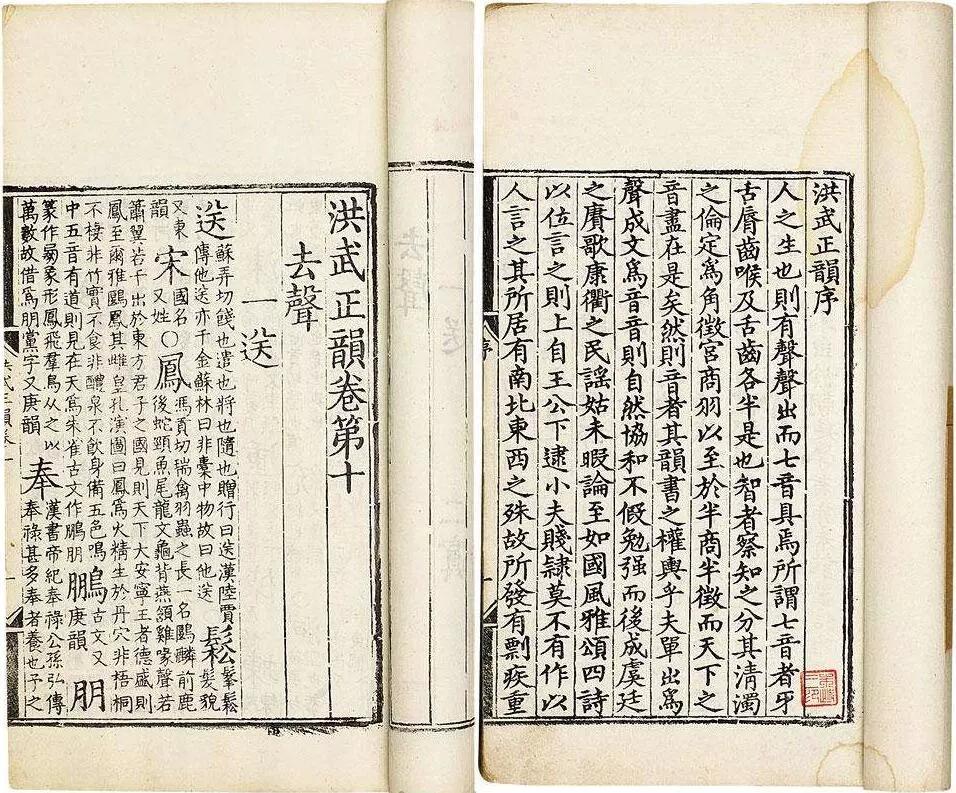 洪武正韻序
人之生也則有聲聲出而七音具焉所謂七音者牙
舌脣齒喉及舌齒各半是也智者察知之分其清濁
之倫定爲角徵宮商羽以至於半商半徵而天下之
音盡在是矣然則音者其韻書之權輿乎夫單出爲
聲成文爲音音則自然協和不假勉强而後成虞廷
之賡歌康衢之民謠姑未暇論至如國風雅頌四詩
以位言之則上自王公下逮小夫賤隸莫不有作以
人言之其所居有南北東西之殊故所發有剽疾重
洪武正韻卷第十
去聲
一送
送蘇弄切餞也遣也將也隨也贈行曰送漢陸賈傳他送亦千金蘇林曰非橐中物故曰他送鬆鬆髮貌
又東韻宋國名又姓〇鳳馮貢切瑞禽羽蟲之長一名鶠麟前鹿後蛇頸魚尾龍文龜背燕頷雞喙聲若
簫翼若干出於東方君子之國見則天下大安寧王者德盛則鳳至爾雅鶠鳳其雌皇孔演圖曰鳳爲火精生於丹穴非梧桐
不棲非竹實不食非醴泉不飲身備五色鳴中五音有道則見在天爲朱雀古文作鵬朋鵬古文又庚韻朋
篆作象形鳳飛羣鳥从之以萬數故借爲朋黨字又庚韻奉漢書帝紀奉祿公孫弘傳奉祿甚多奉者養也子之